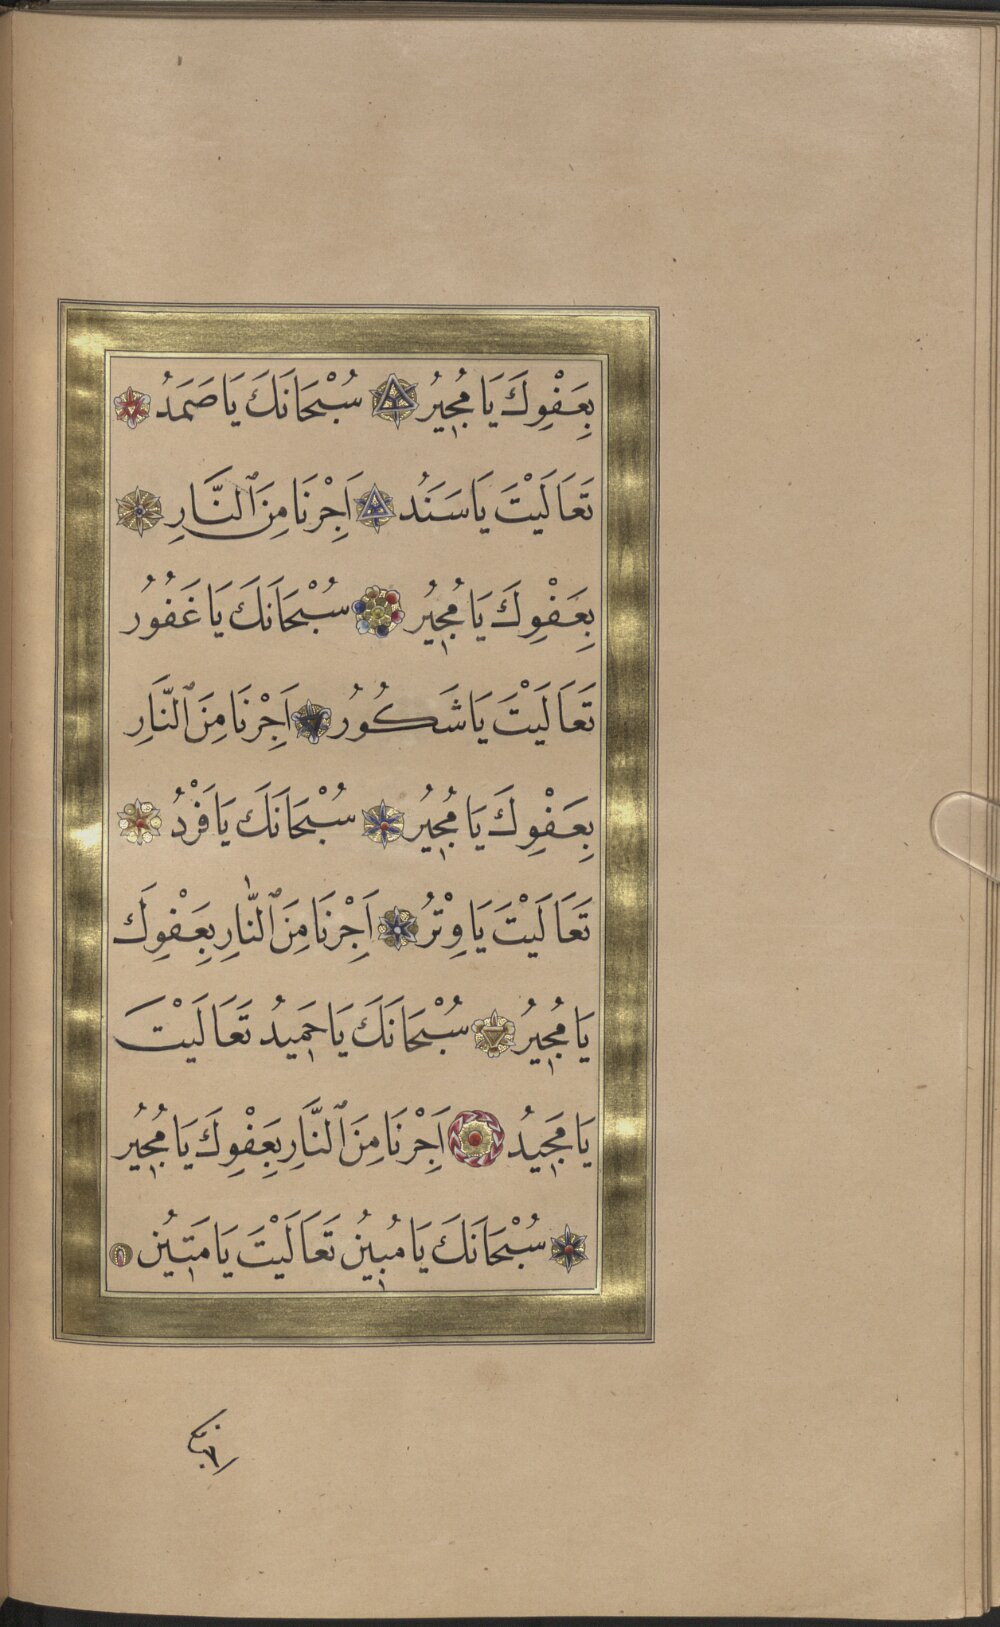 بِعَفْوِكَ يَا مُجِيرُ سُبْحَانَكَ يَا صَمَدُ
تَعَالَيْتَ يَا سَنَدُ اَجِرْنَا مِنَ ٱلنَّارِ
بِعَفْوِكَ يَا مُجِيرُ سُبْحَانَكَ يَا غَفُورُ
تَعَالَيْتَ يَا شَكُورُ اَجِرْنَا مِنَ ٱلنَّارِ
بِعَفْوِكَ يَا مُجِيرُ سُبْحَانَكَ يَا فَرْدُ
تَعَالَيْتَ يَا وِتْرُ اَجِرْنَا مِنَ ٱلنَّارِ بِعَفْوِكَ
يَا مُجِيرُ سُبْحَانَكَ يَا حَمِيدُ تَعَالَيْتَ
يَا مَجِيدُ اَجِرْنَا مِنَ ٱلنَّارِ بِعَفْوِكَ يَا مُجِيرُ
سُبْحَانَكَ يَا مُبِينُ تَعَالَيْتَ يَا مَتِينُ